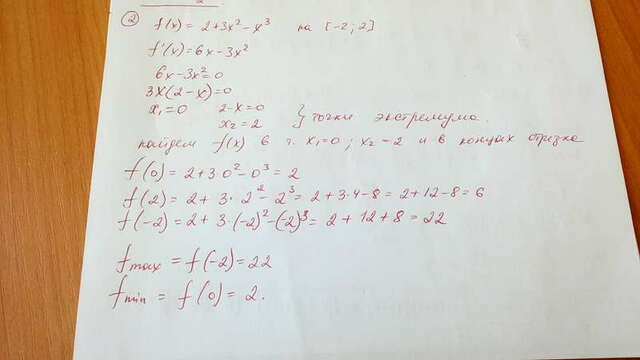 ② f(x) = 2+3x² - x³ на [-2; 2]
f'(x) = 6x - 3x²
6x - 3x² = 0
3x(2 - x) = 0
x₁ = 0 2 - x = 0
x₂ = 2 } точки экстремума.
найдем f(x) в т. x₁=0; x₂ = 2 и в концах отрезка
f(0) = 2+3·0² - 0³ = 2
f(2) = 2 + 3·2² - 2³ = 2+3·4-8 = 2+12-8 = 6
f(-2) = 2+ 3·(-2)² - (-2)³ = 2 + 12 + 8 = 22
fmax = f(-2) = 22
fmin = f(0) = 2.